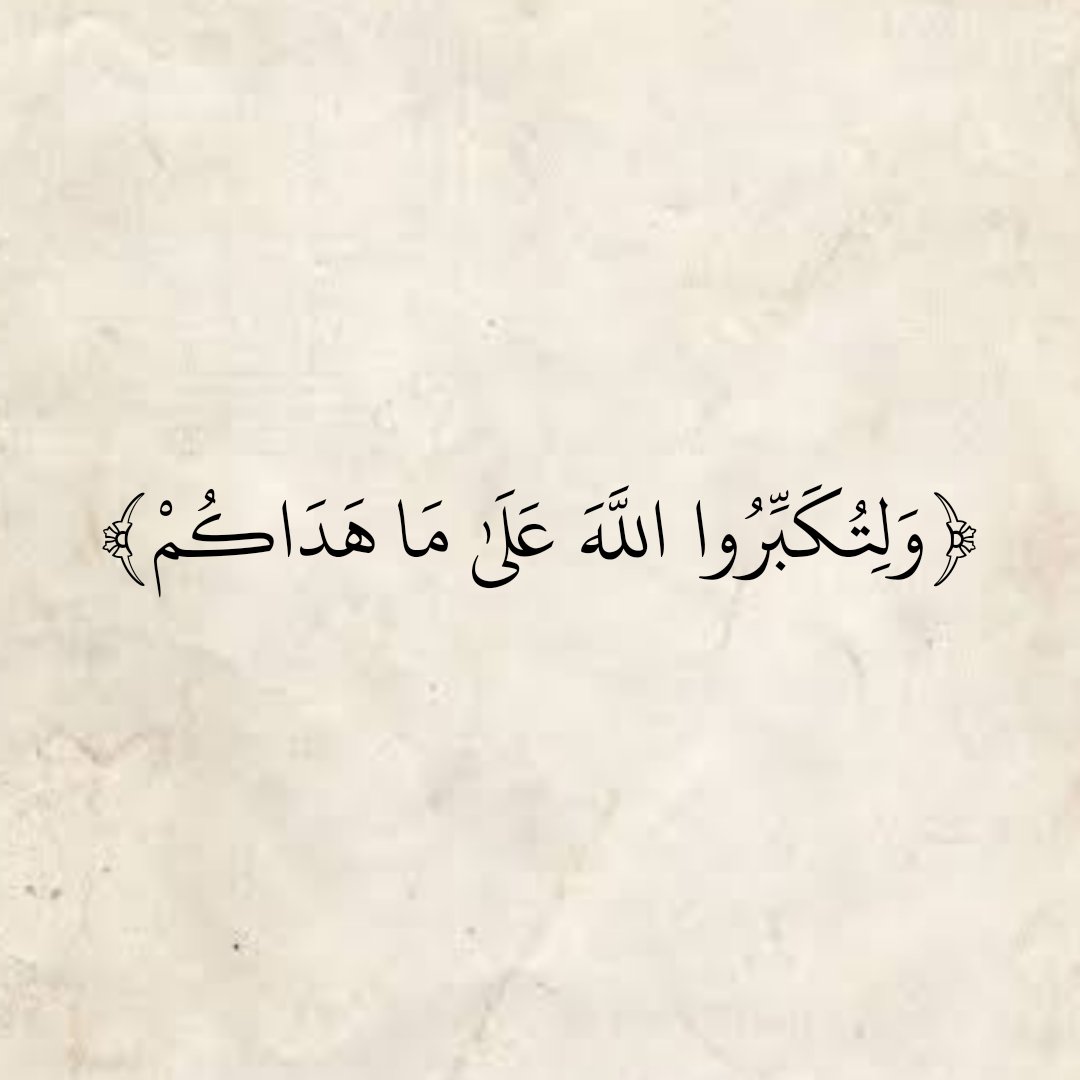 ﴿وَلِتُكَبِّرُوا اللَّهَ عَلَىٰ مَا هَدَاكُمْ﴾